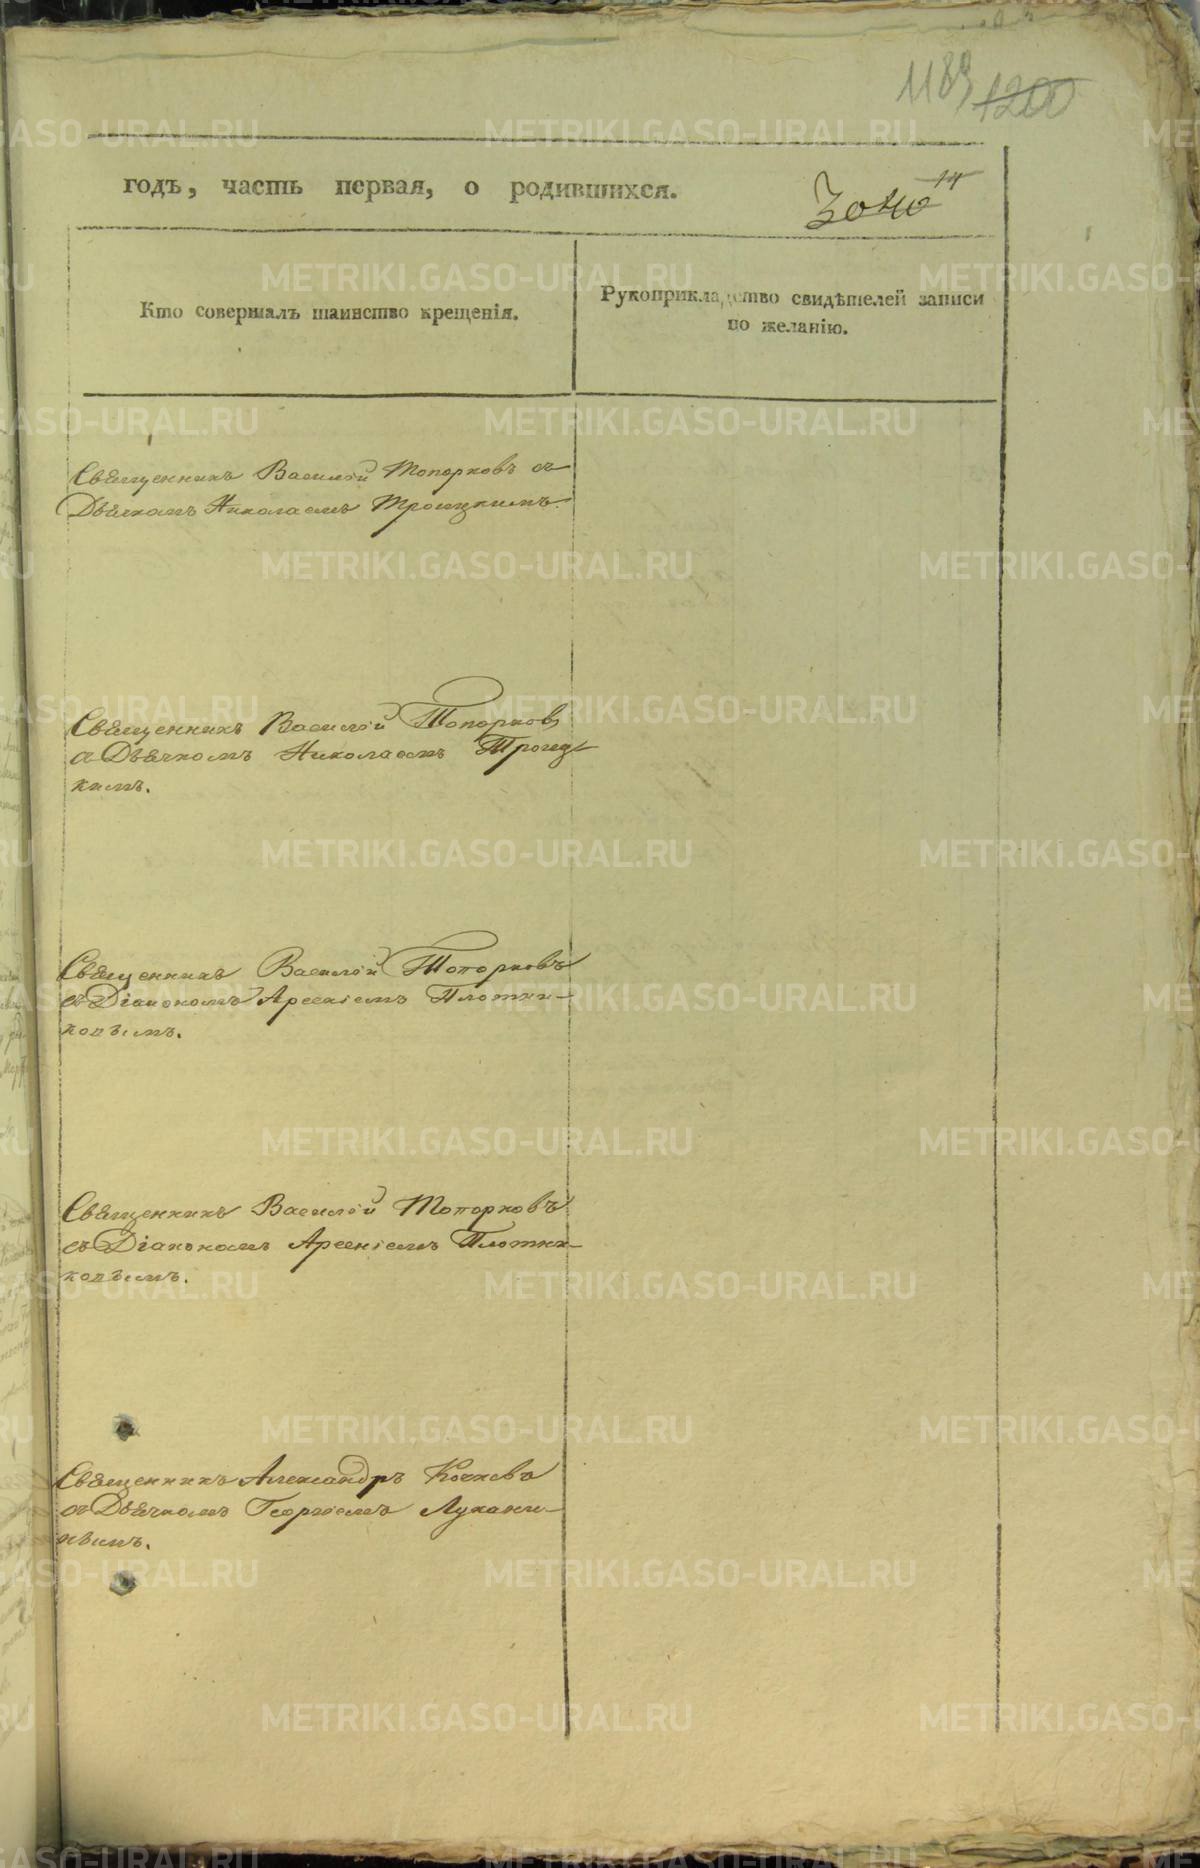 1189 1200
годъ, часть первая, о родившихся.
14
Кто совершалъ таинство крещенія.
Рукоприкладство свидѣтелей записи
по желанію.
Священникъ Василій Топорковъ съ
Дьячкомъ Николаемъ Троицкимъ.
Священникъ Василій Топорковъ
съ Дьячкомъ Николаемъ Троиц-
кимъ.
Священникъ Василій Топорковъ
съ Діакономъ Арсеніемъ Плотни-
ковымъ.
Священникъ Василій Топорковъ
съ Діакономъ Арсеніемъ Плотни-
ковымъ.
Священникъ Александръ
съ Дьячкомъ Георгіемъ Лукани-
нымъ.
METRIKI.GASO-URAL.RU